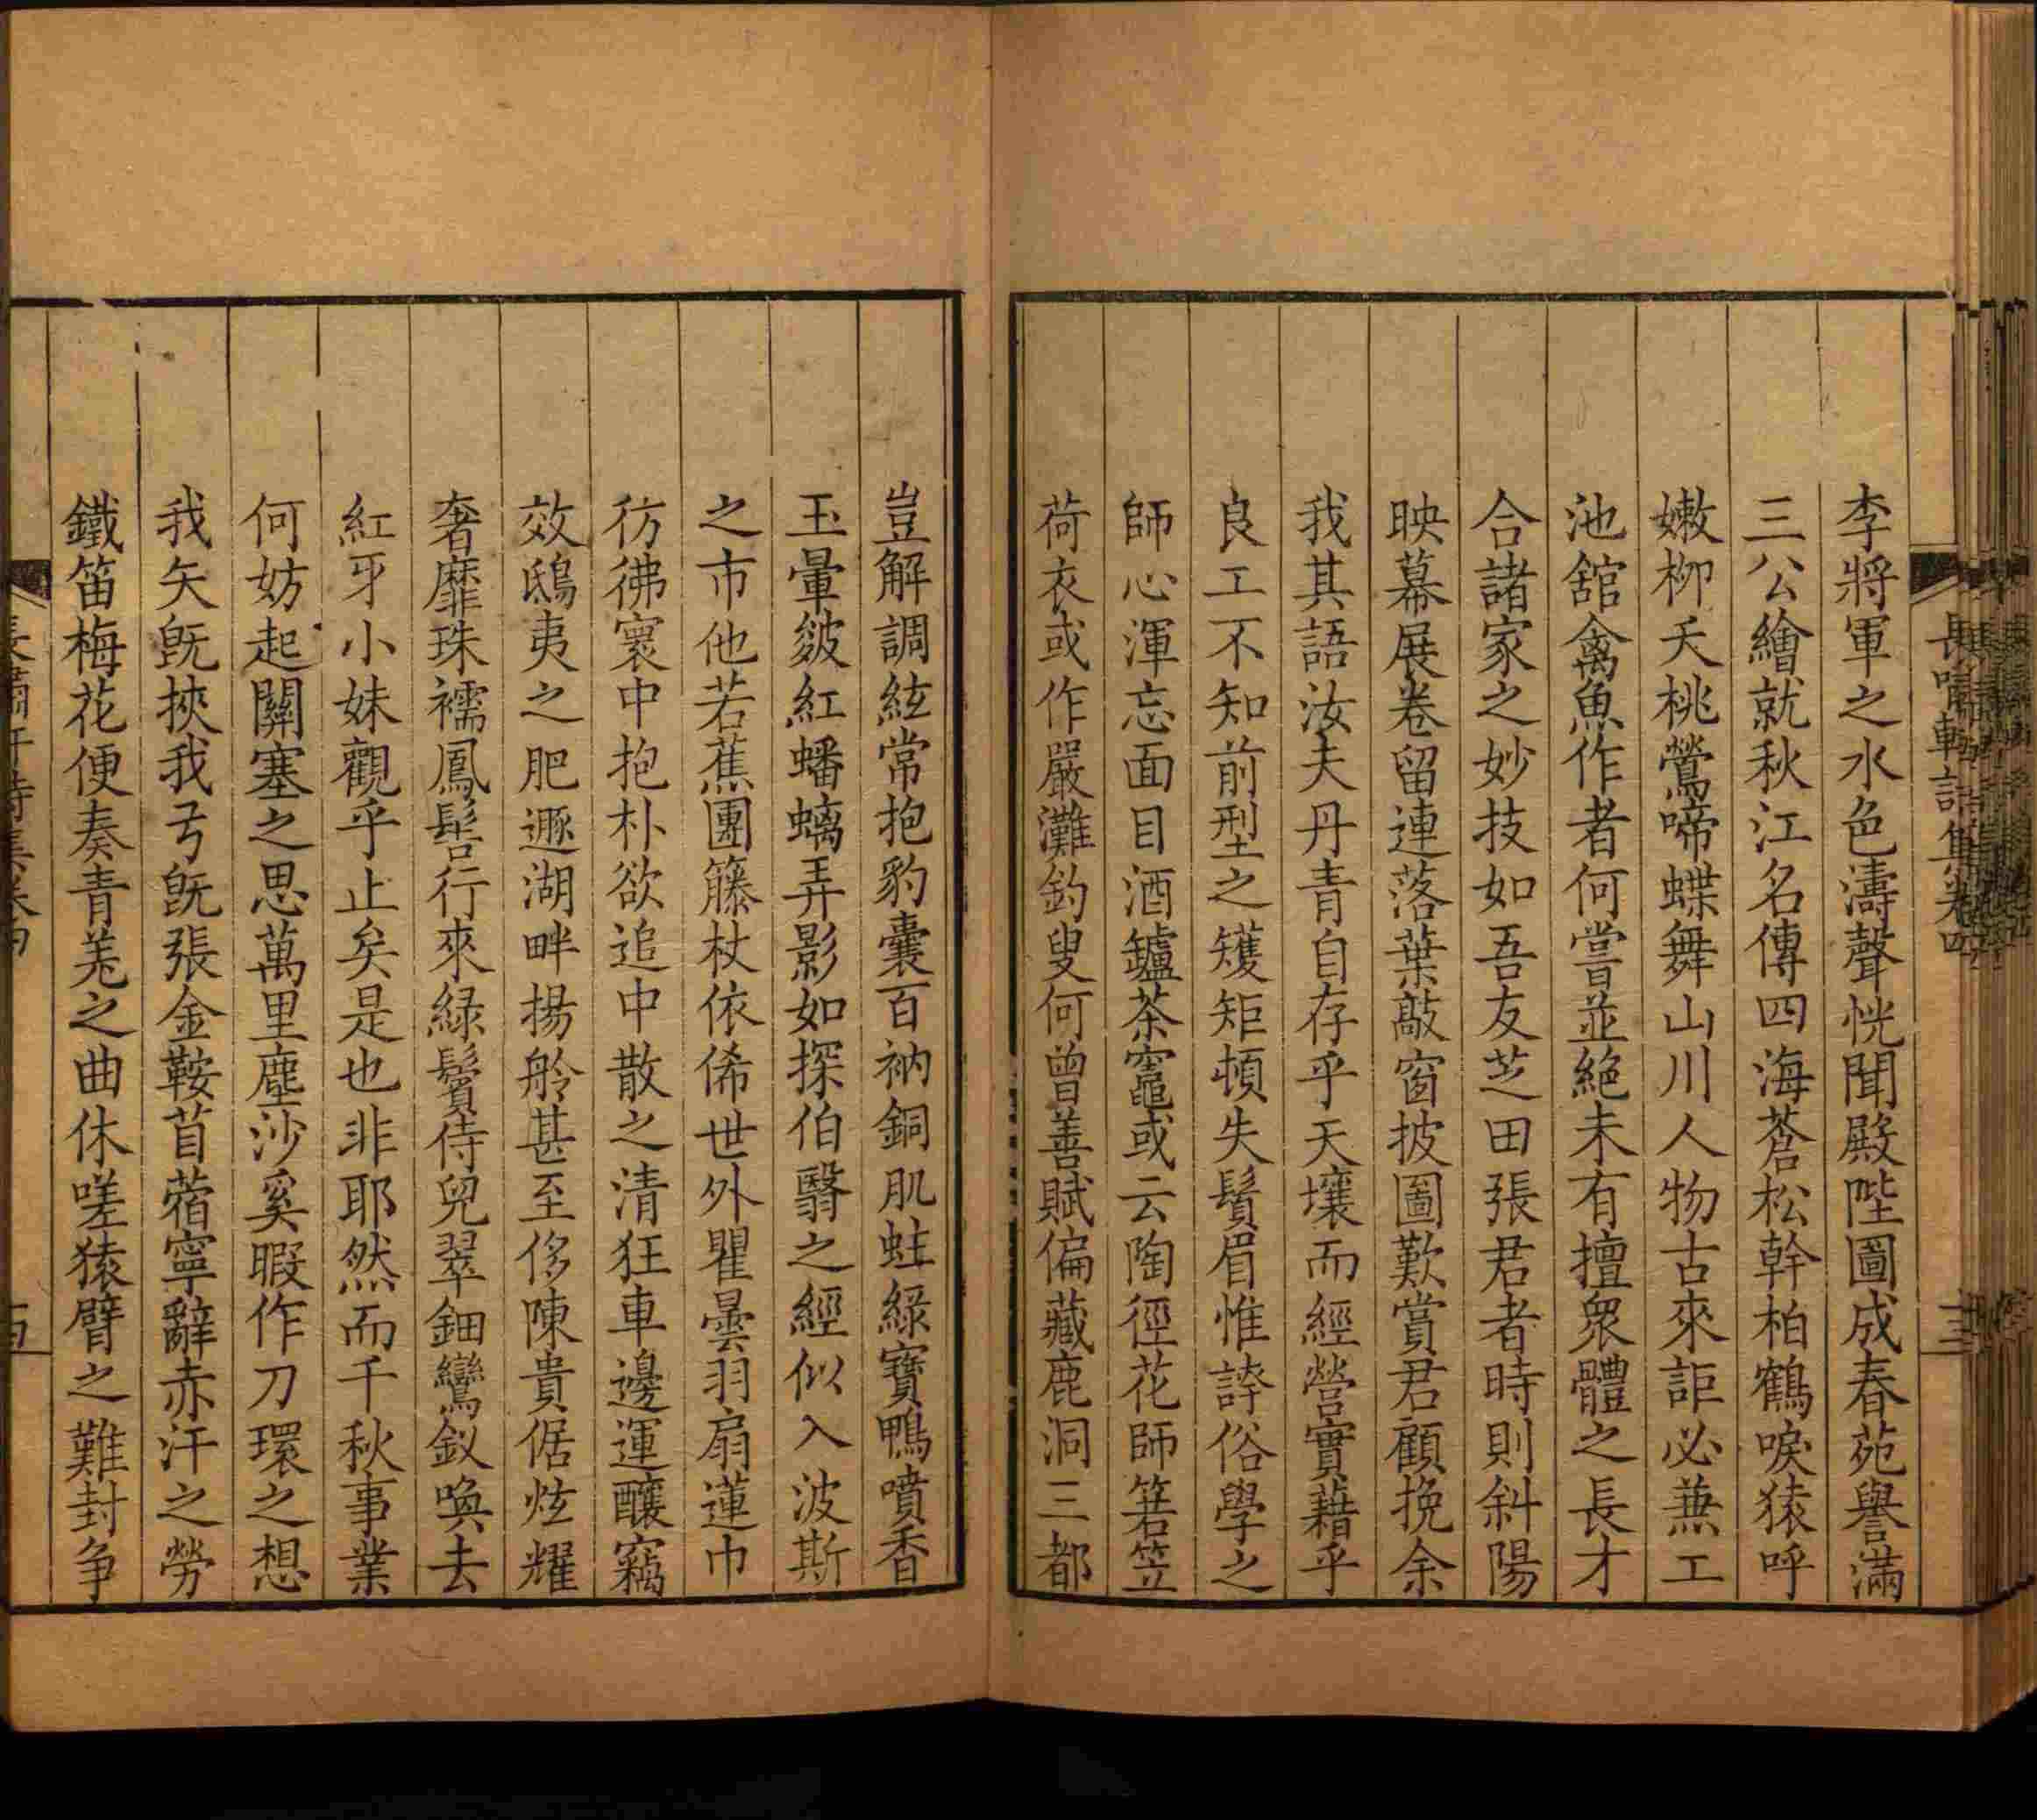 長嘯軒詩集卷四
十三
李將軍之水色濤聲恍聞殿陛圖成春苑譽滿
三公繪就秋江名傳四海蒼松幹柏鶴唳猿呼
嫩柳夭桃鶯啼蝶舞山川人物古來詎必兼工
池舘禽魚作者何嘗並絶未有擅衆體之長才
合諸家之妙技如吾友芝田張君者時則斜陽
映幕展卷留連落葉敲窗披圖歎賞君顧挽余
我其語汝夫丹青自存乎天壤而經營實藉乎
良工不知前型之矱矩頓失鬚眉惟誇俗學之
師心渾忘面目酒鑪茶竈或云陶徑花師箬笠
荷衣或作嚴灘釣叟何曾善賦偏藏鹿洞三都
豈解調絃常抱豹囊百衲銅肌蛀綠寶鴨噴香
玉暈皴紅蟠螭弄影如探伯翳之經似入波斯
之市他若蕉團籐杖依俙世外瞿曇羽扇蓮巾
彷彿寰中抱朴欲追中散之清狂車邊運釀竊
效鴟夷之肥遯湖畔揚舲甚至侈陳貴倨炫耀
奢靡珠襦鳳髻行來綠鬢侍兒翠鈿鸞釵喚去
紅牙小妹觀乎止矣是也非耶然而千秋事業
何妨起關塞之思萬里塵沙奚暇作刀環之想
我矢旣挾我弓旣張金鞍苜蓿寧辭赤汗之勞
鐵笛梅花便奏青羌之曲休嗟猿臂之難封争
長嘯軒詩集卷四